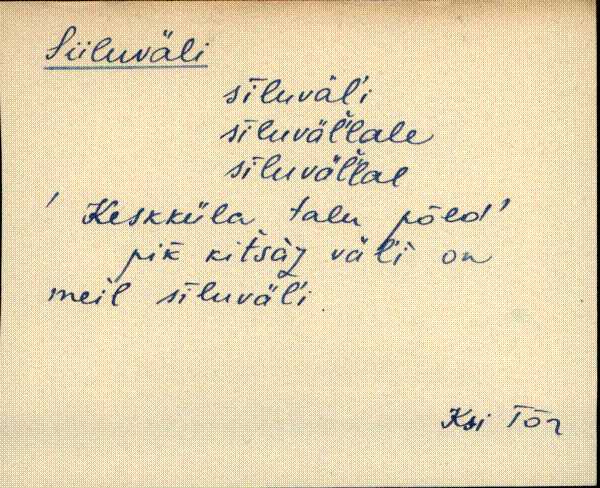 Siiluväli
sīluväl'i
sīluvällale
sīluvällal
' Keskküla talu põld'
pik̄ kitsàz väl'i on
meil sīluväl'i.
Ksi Tõr